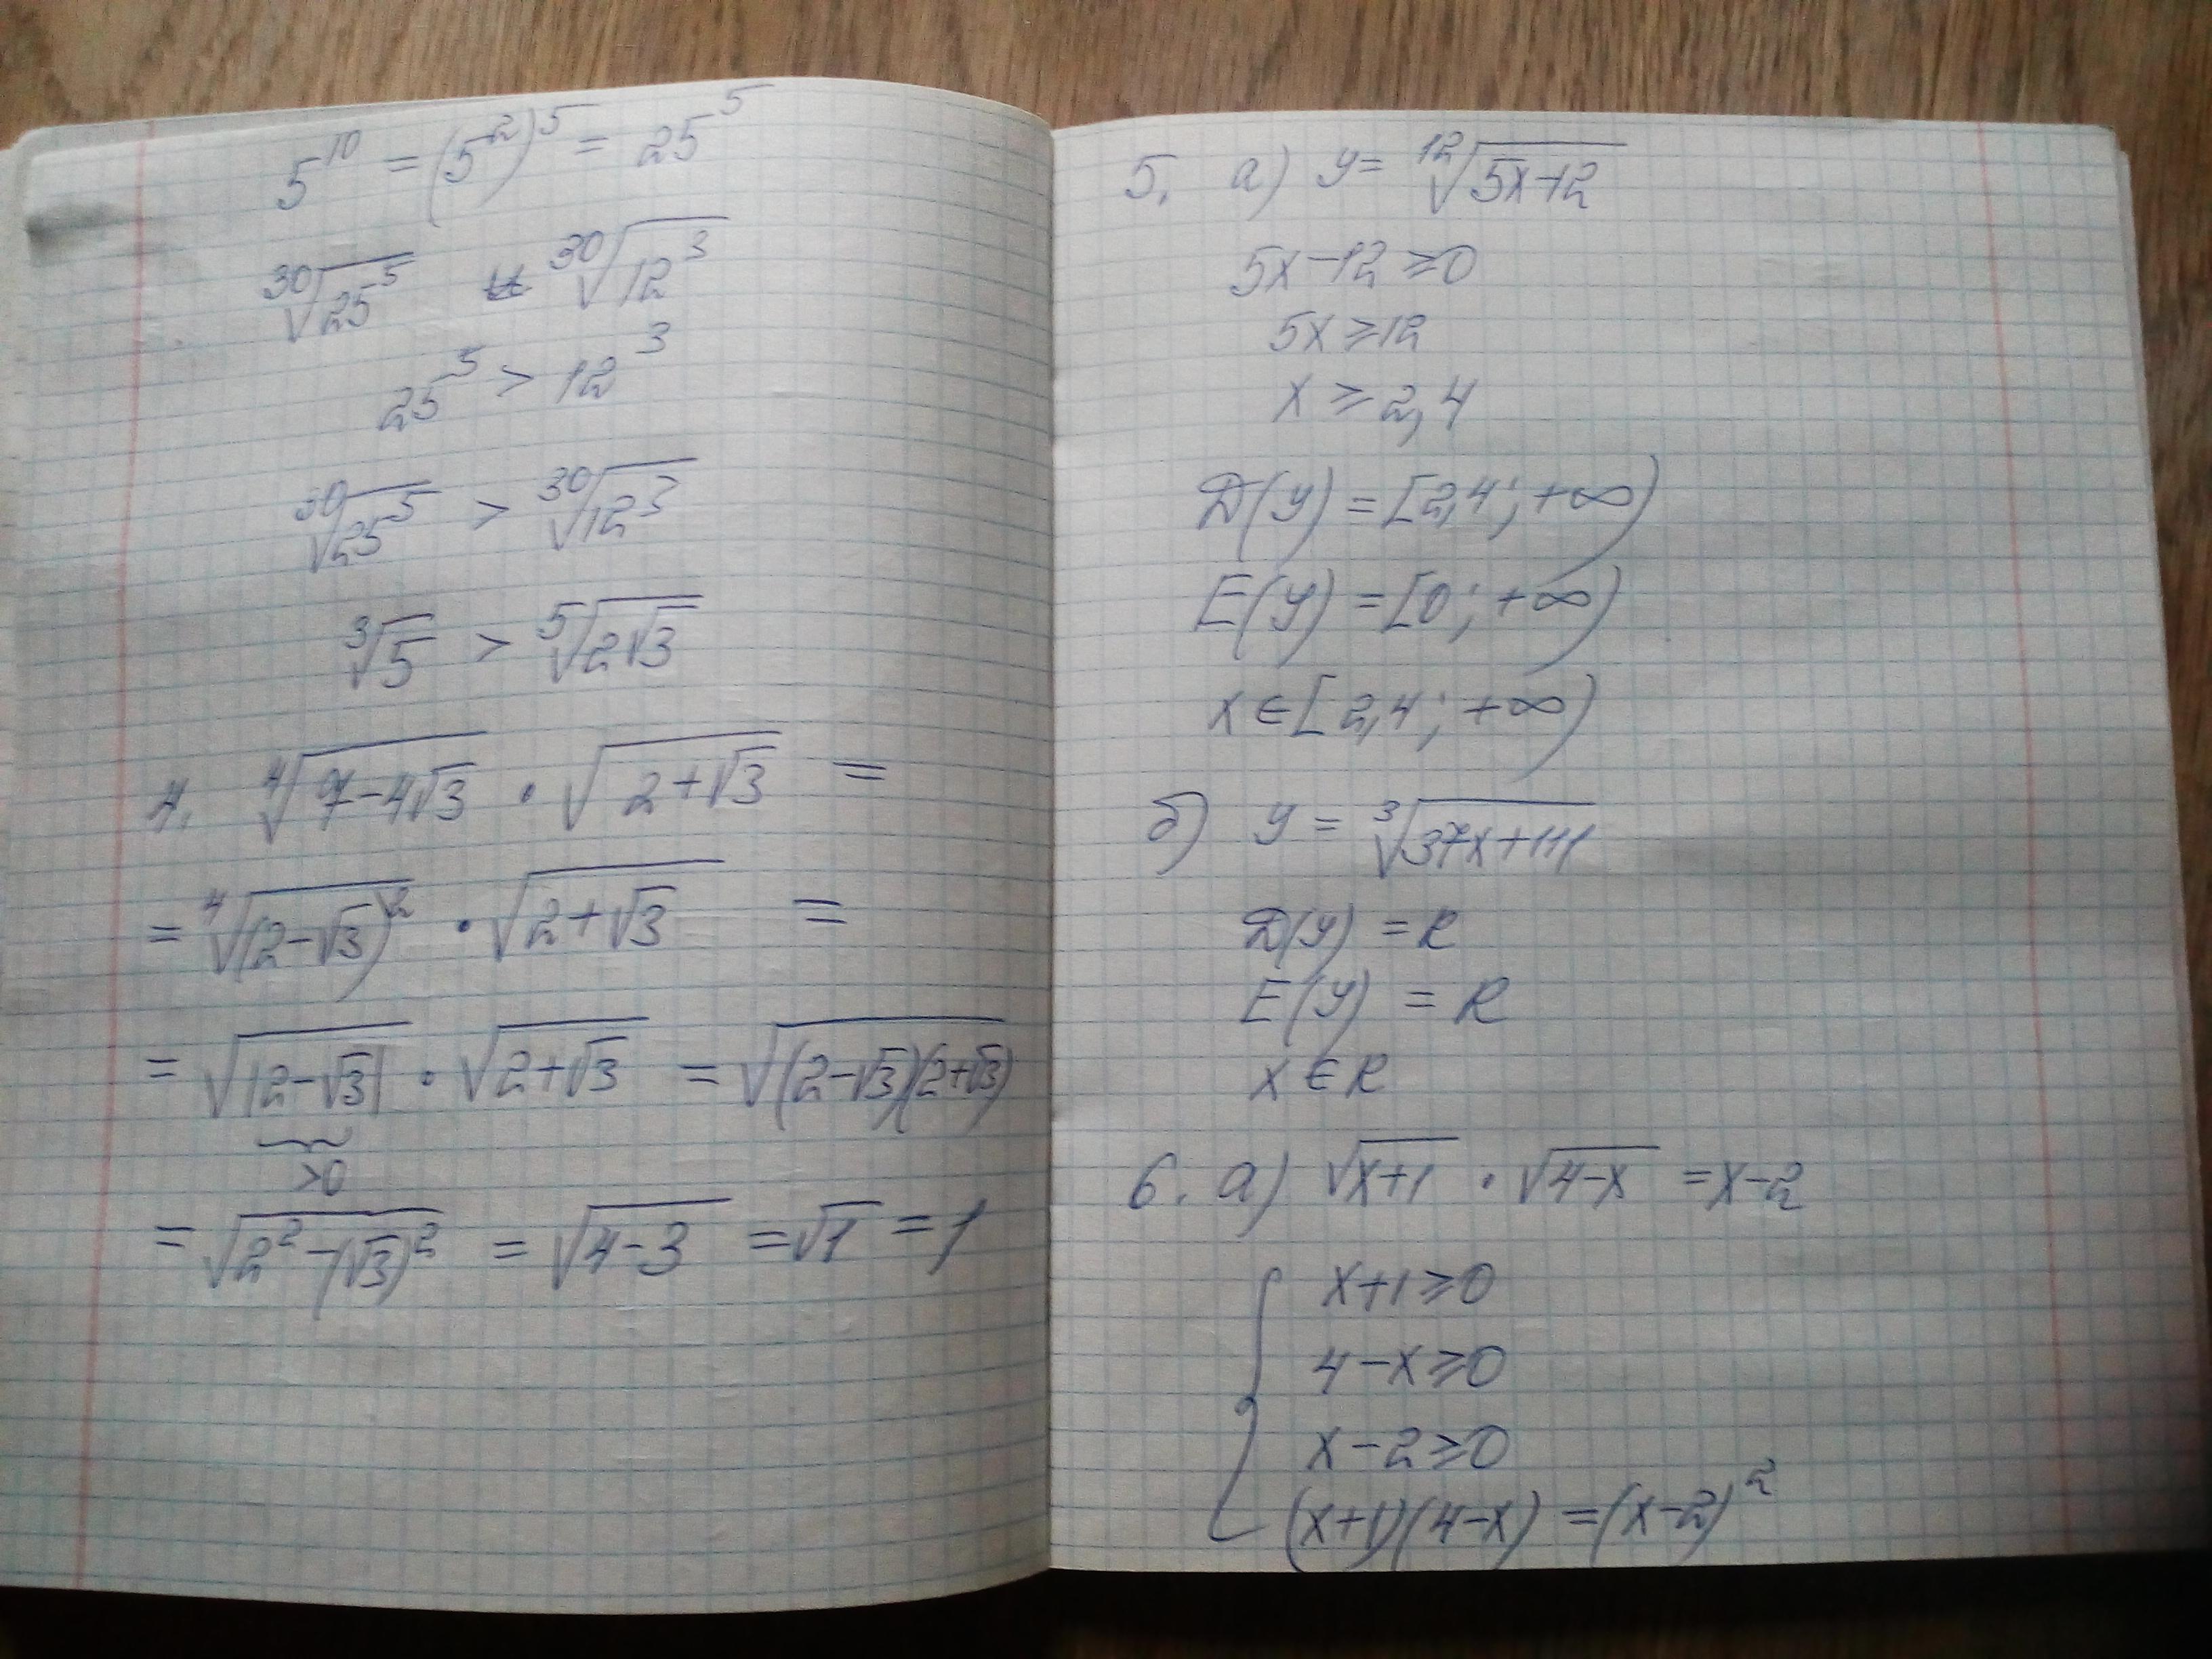 5^10 = (5^2)^5 = 25^5
³⁰√(25^5) и ³⁰√(12^3)
25^5 > 12^3
³⁰√(25^5) > ³⁰√(12^3)
³√5 > ⁵√(2√3)
4. ⁴√(7-4√3) · √(2+√3) =
= ⁴√((2-√3)^2) · √(2+√3) =
= √|2-√3| · √(2+√3) = √((2-√3)(2+√3))
>0
= √(2^2-(√3)^2) = √(4-3) = √1 = 1
5. а) y = ¹²√(5x-12)
5x-12 ≥ 0
5x ≥ 12
x ≥ 2,4
D(y) = [2,4; +∞)
E(y) = [0; +∞)
x ∈ [2,4; +∞)
б) y = ³√(37x+111)
D(y) = R
E(y) = R
x ∈ R
6. а) √(x+1) · √(4-x) = x-2
x+1 ≥ 0
4-x ≥ 0
x-2 ≥ 0
(x+1)(4-x) = (x-2)^2